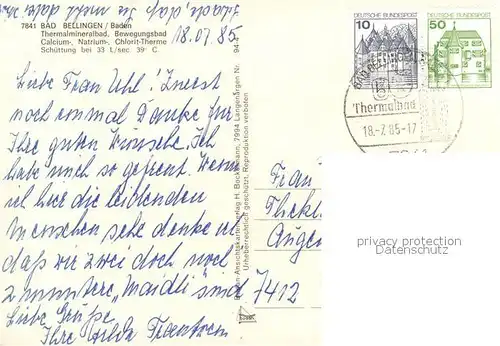 7841 BAD BELLINGEN / Baden
Thermalmineralbad, Bewegungsbad
Calcium-, Natrium-, Chlorit-Therme
Schüttung bei 33 l/sec. 39° C
18.07.85
Liebe Frau Uhl! Zuerst
noch einmal Danke für
Ihre guten Wünsche. Ich
habe mich so gefreut. Wenn
ich hier die leidenden
Menschen sehe denke ich
daß wir zwei doch noch
2 muntere "Maidli" sind
Liebe Grüße
Ihre Hilda
Ansichtskartenverlag H. Bockelmann, 7994 Langenargen Nr. 94
Urheberrechtlich geschützt, Reproduktion verboten
DEUTSCHE BUNDESPOST
10
DEUTSCHE BUNDESPOST
50
Thermalbad
18.-7.85-17
Frau
7412
privacy protection
Datenschutz